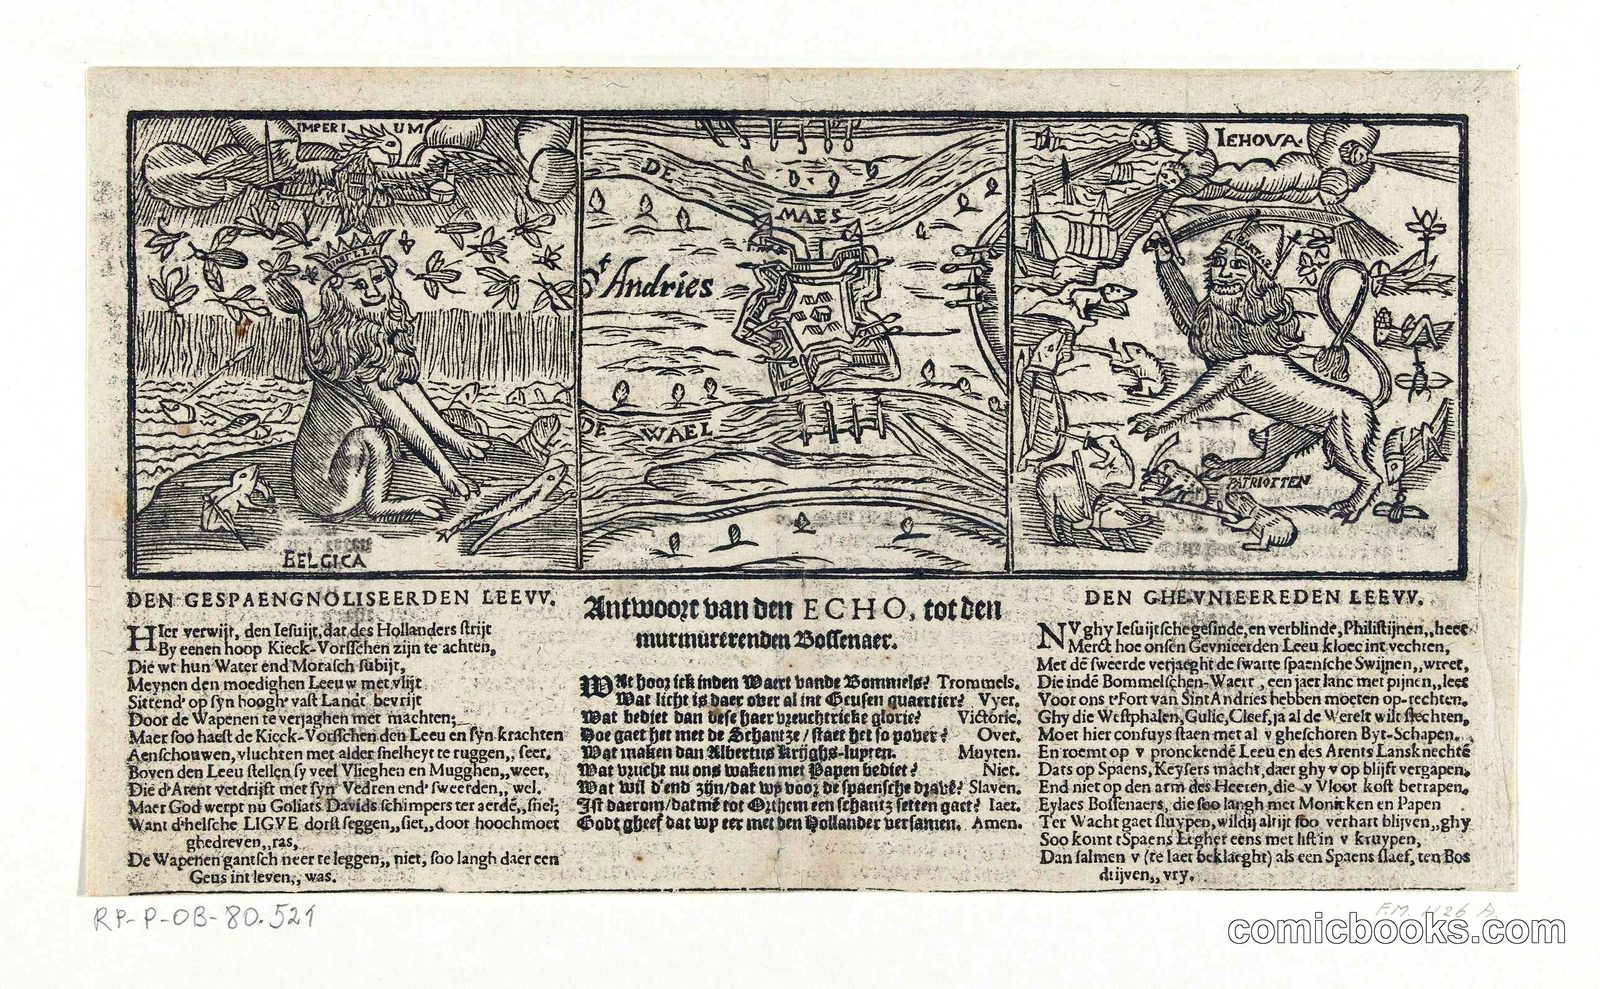 IMPERIUM
BELGICA
DE
MAES
St Andries
DE WAEL
IEHOVA.
PATRIOTTEN
DEN GESPAENGNOLISEERDEN LEEVV.
HIer verwijt, den Iesuijt, dat des Hollanders strijt
By eenen hoop Kieck-Vorsschen zijn te achten,
Die wt hun Water end Morasch subijt,
Meynen den moedighen Leeuw met vlijt
Sittend' op syn hoogh' vast Landt bevrijt
Door de Wapenen te verjaghen met machten;
Maer soo haest de Kieck-Vorsschen den Leeu en syn krachten
Aenschouwen, vluchten met alder snelheyt te ruggen,, seer.
Boven den Leeu stellen sy veel Vlieghen en Mugghen,, weer,
Die d'Arent vetdrijft met syn Vedren end' sweerden,, wel.
Maer God werpt nu Goliats Davids schimpers ter aerdē,, snel;
Want d'helsche LIGVE dorst seggen,, siet,, door hoochmoet
ghedreven,, ras,
De Wapenen gantsch neer te leggen,, niet, soo langh daer een
Geus int leven,, was.
Antwoort van den ECHO, tot den
murmurerenden Bossenaer.
WAt hoor ick inden Waert vande Bommels? Trommels.
Wat licht is daer over al int Geusen quaertier? Vyer.
Wat bediet dan dese haer vreuchtricke glorie? Victorie.
Hoe gaet het met de Schantze / staet het so pover? Over.
Wat maken dan Albertus krijghs-luyten. Muyten.
Wat vrucht nu ons waken met Papen bediet? Niet.
Wat wil d'end zijn / dat wy voor de spaensche drave? Slaven.
Ist daerom / datmē tot Orthem een schantz setten gaet? Iaet.
Godt gheef dat wy eer met den Hollander versamen. Amen.
DEN GHEVNIEEREDEN LEEVV.
NV ghy Iesuijtsche gesinde, en verblinde, Philistijnen,, heet
Merct hoe onsen Gevnieerden Leeu kloec int vechten,
Met dē sweerde verjaeght de swarte spaensche Swijnen,, wreet,
Die indē Bommelschen-Waert, een jaer lanc met pijnen,, leet
Voor ons t'Fort van Sint Andries hebben moeten op-rechten.
Ghy die Westphalen, Gulic, Cleef, ja al de Werelt wilt slechten,
Moet hier confuys staen met al v gheschoren Byt-Schapen.
En roemt op v pronckendē Leeu en des Arents Lansknechtē
Dats op Spaens, Keysers macht, daer ghy v op blijft vergapen.
End niet op den arm des Heeren, die v Vloot kost betrapen.
Eylaes Bossenaers, die soo langh met Monicken en Papen
Ter Wacht gaet sluypen, wildij altijt soo verhart blijven,, ghy
Soo komt t'Spaens Legher eens met list in v kruypen,
Dan salmen v (te laet beklaeght) als een Spaens slaef, ten Bos
dtijven,, vry.
RP-P-OB-80.521
F.M. 1126 A.
comicbooks.com